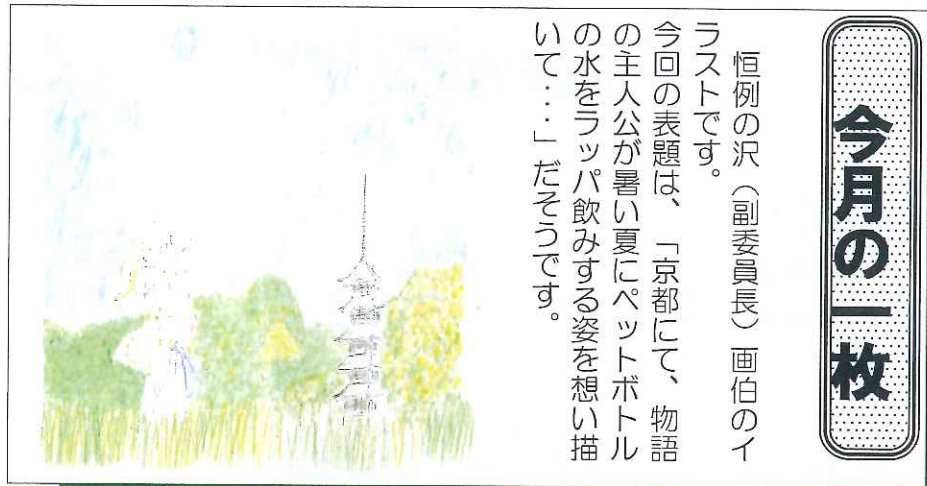 今月の一枚
恒例の沢（副委員長）画伯のイ
ラストです。
今回の表題は、「京都にて、物語
の主人公が暑い夏にペットボトル
の水をラッパ飲みする姿を想い描
いて・・・」だそうです。